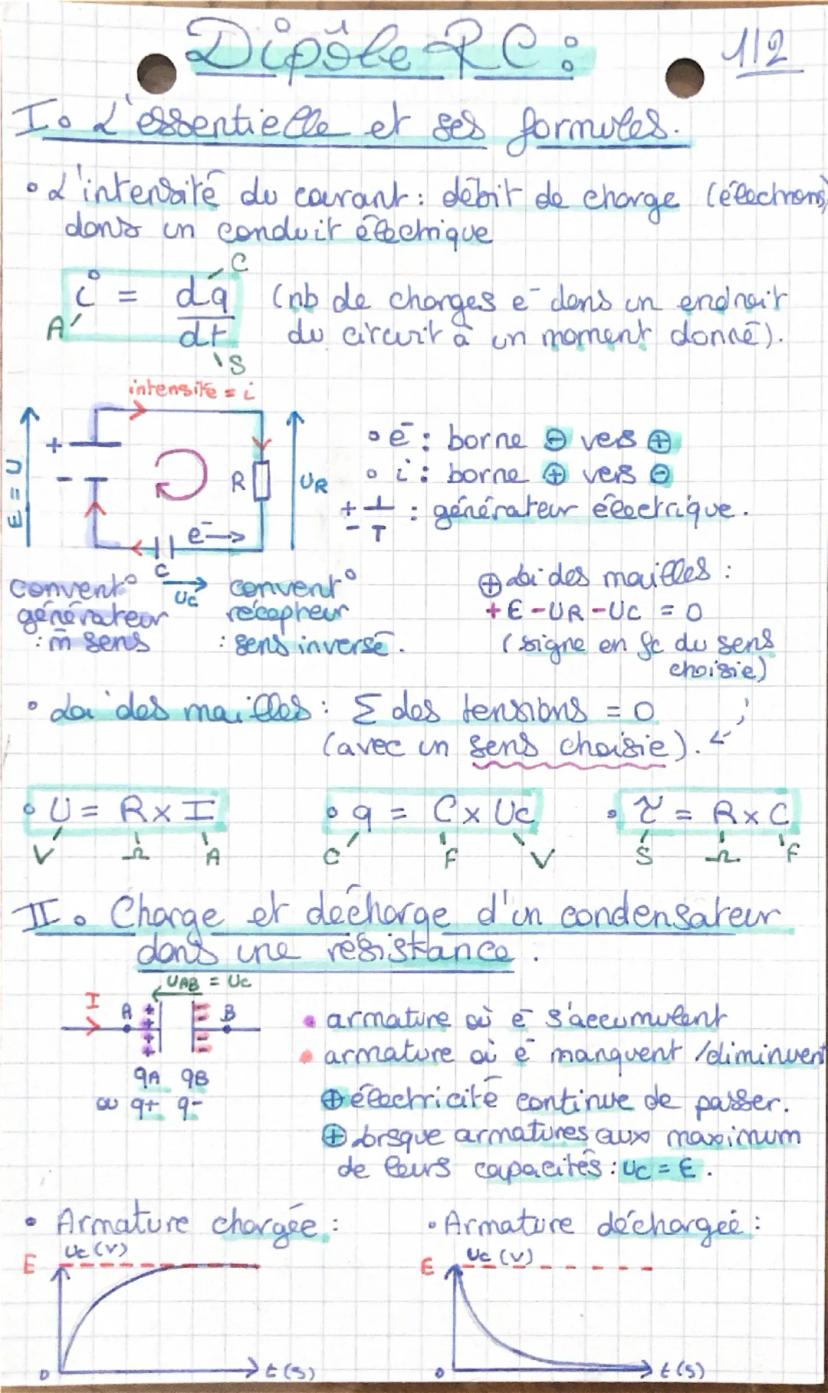 Dipôle RC :
1/2
I. L'essentielle et ses formules.
• L'intensité du courant : débit de charge (électrons)
dans un conduit électrique
i = dq/dt
C
A
S
(nb de charges e⁻ dans un endroit
du circuit à un moment donné).
intensité = i
E = U
+
-
R
UR
e⁻ →
C
Uc
convent° générateur : m̄ sens
convent° récepteur : sens inversé.
• e⁻ : borne ⊖ vers ⊕
• i : borne ⊕ vers ⊖
+ - : générateur électrique.
⊕ Loi des mailles :
+E - UR - Uc = 0
(signe en fc du sens
choisie)
• Loi des mailles : Σ des tensions = 0
(avec un sens choisie).
• U = R x I
V Ω A
• q = C x Uc
C F V
• τ = R x C
S Ω F
II. Charge et décharge d'un condensateur
dans une résistance.
UAB = Uc
I
A B
+ -
+ -
+ -
+ -
qA qB
ou q+ q-
• armature où e⁻ s'accumulent
• armature où e⁻ manquent /diminuent
⊕ électricité continue de passer.
⊕ Lorsque armatures aux maximum
de leurs capacités : Uc = E.
• Armature chargée :
Uc (V)
E
0
t (s)
• Armature déchargée :
Uc (V)
E
0
t (s)